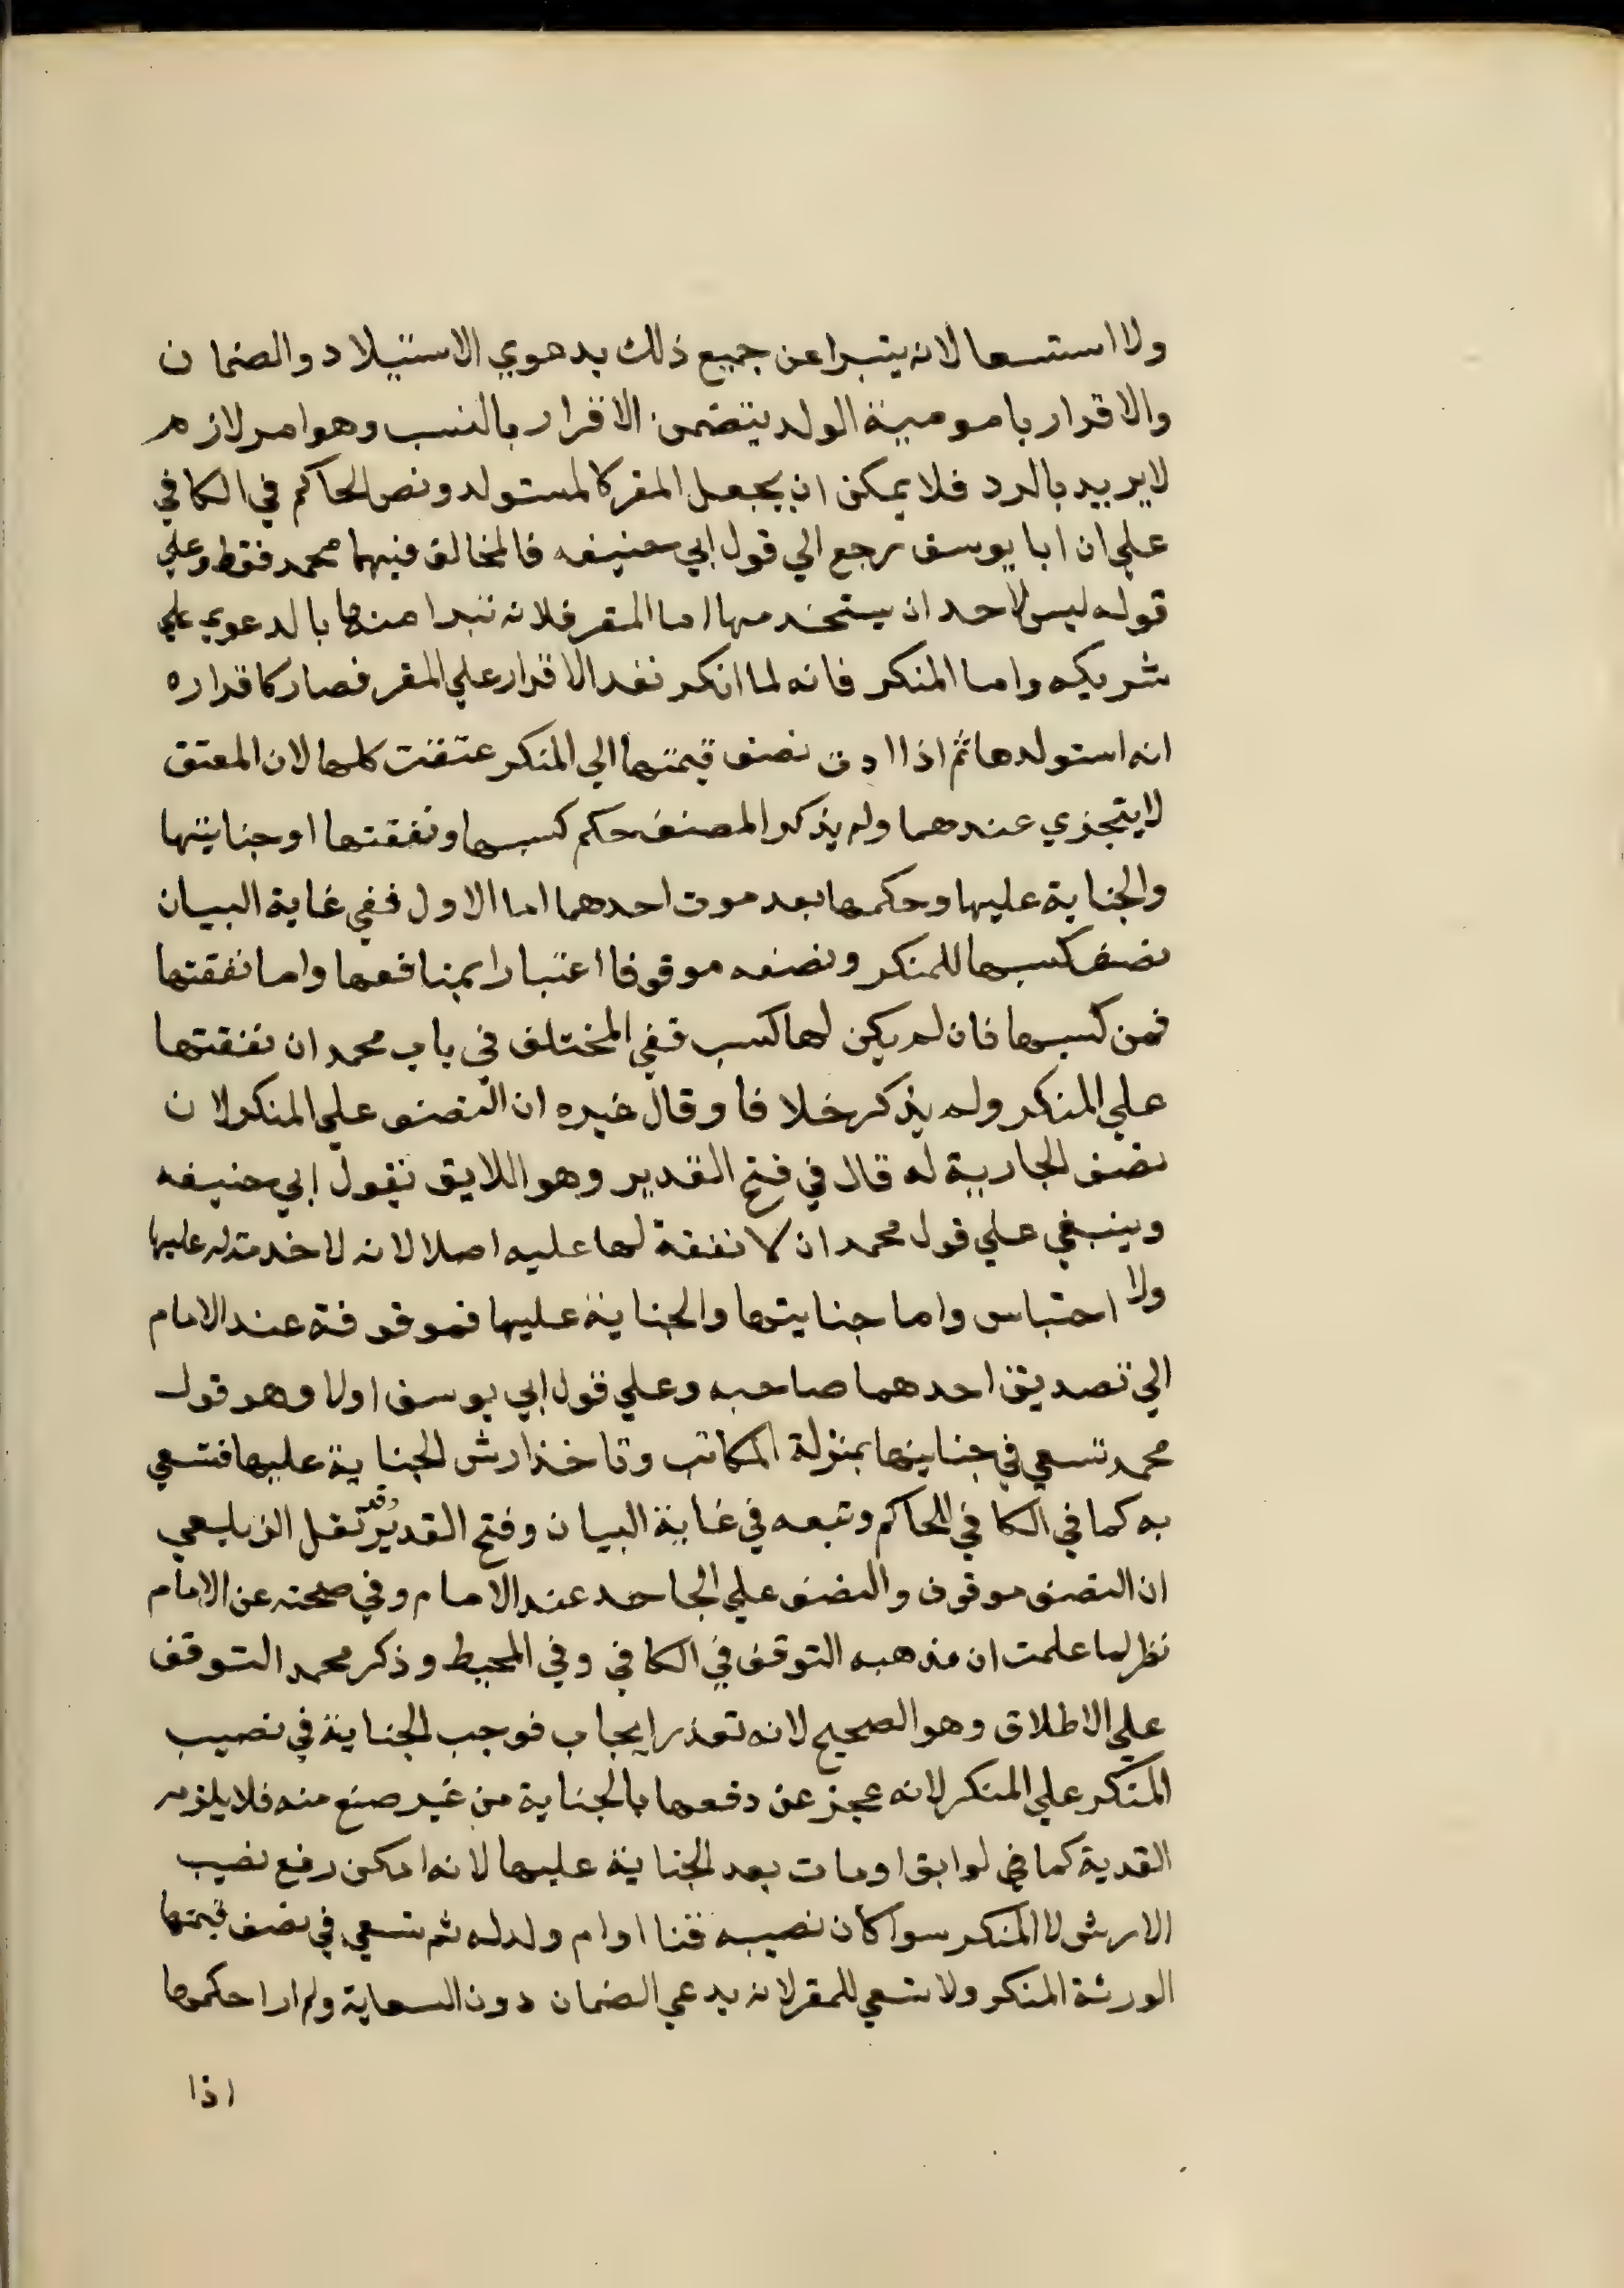 ولا استسعا لانه يتبرا عن جميع ذلك بدعوي الاستيلاد والضمان
والاقرار بامومية الولد يتضمن الاقرار بالنسب وهو امر لازم
لا يريد بالرد فلا يمكن ان يجعل المقر كالمستولد ونص الحاكم في الكافي
علي ان ابا يوسف رجع الي قول ابي حنيفه فالمخالف فيهما محمد فقط وعلي
قوله ليس لاحد ان يستخدمها اما المقر فلانه تبرا منها بالدعوي علي
شريكه واما المنكر فانه لما انكر نفد الاقرار علي المقر فصار كاقراره
انه استولدها ثم اذا ادت نصف قيمتها الي المنكر عتقت كلها لان المعتق
لا يتجزي عندهما ولم يذكر المصنف حكم كسبها ونفقتها او جنايتها
والجناية عليها وحكمها بعد موت احدهما اما الاول ففي غاية البيان
نصف كسبها للمنكر ونصفه موقوفا اعتبارا بمنافعها واما نفقتها
فمن كسبها فان لم يكن لها كسب ففي المختلف في باب محمد ان نفقتها
علي المنكر ولم يذكر خلافا وقال غيره ان النصف علي المنكر لان
نصف الجارية له قال في فتح القدير وهو اللايق بقول ابي حنيفه
وينبغي علي قول محمد ان لا نفقة لها عليه اصلا لانه لا خدمة له عليها
ولا احتباس واما جنايتها والجناية عليها فموقوفة عند الامام
الي تصديق احدهما صاحبه وعلي قول ابي يوسف اولا وهو قول
محمد تسعي في جنايتها بمنزلة المكاتب وتاخذ ارش الجناية عليها فتسعي
به كما في الكافي للحاكم وتبعه في غاية البيان وفتح القدير وقد نقل الزيلعي
ان النصف موقوف والنصف علي الجاحد عند الامام وفي صحته عن الامام
نظر لما علمت ان مذهبه التوقف في الكافي وفي المحيط وذكر محمد التوقف
علي الاطلاق وهو الصحيح لانه تعذر ايجاب فوجب الجناية في نصيب
المنكر علي المنكر لانه عجز عن دفعها بالجناية من غير صنع منه فلا يلزمه
القدية كما في لو ابق او مات بعد الجناية عليها لانه امكن رفع نصيب
الارش لا المنكر سوا كان نصيبه قنا او ام ولد له ثم تسعي في نصف قيمتها
الورثة المنكر ولا تسعي للمقر لانه يدعي الضمان دون السعاية ولم ار احكمها
اذا